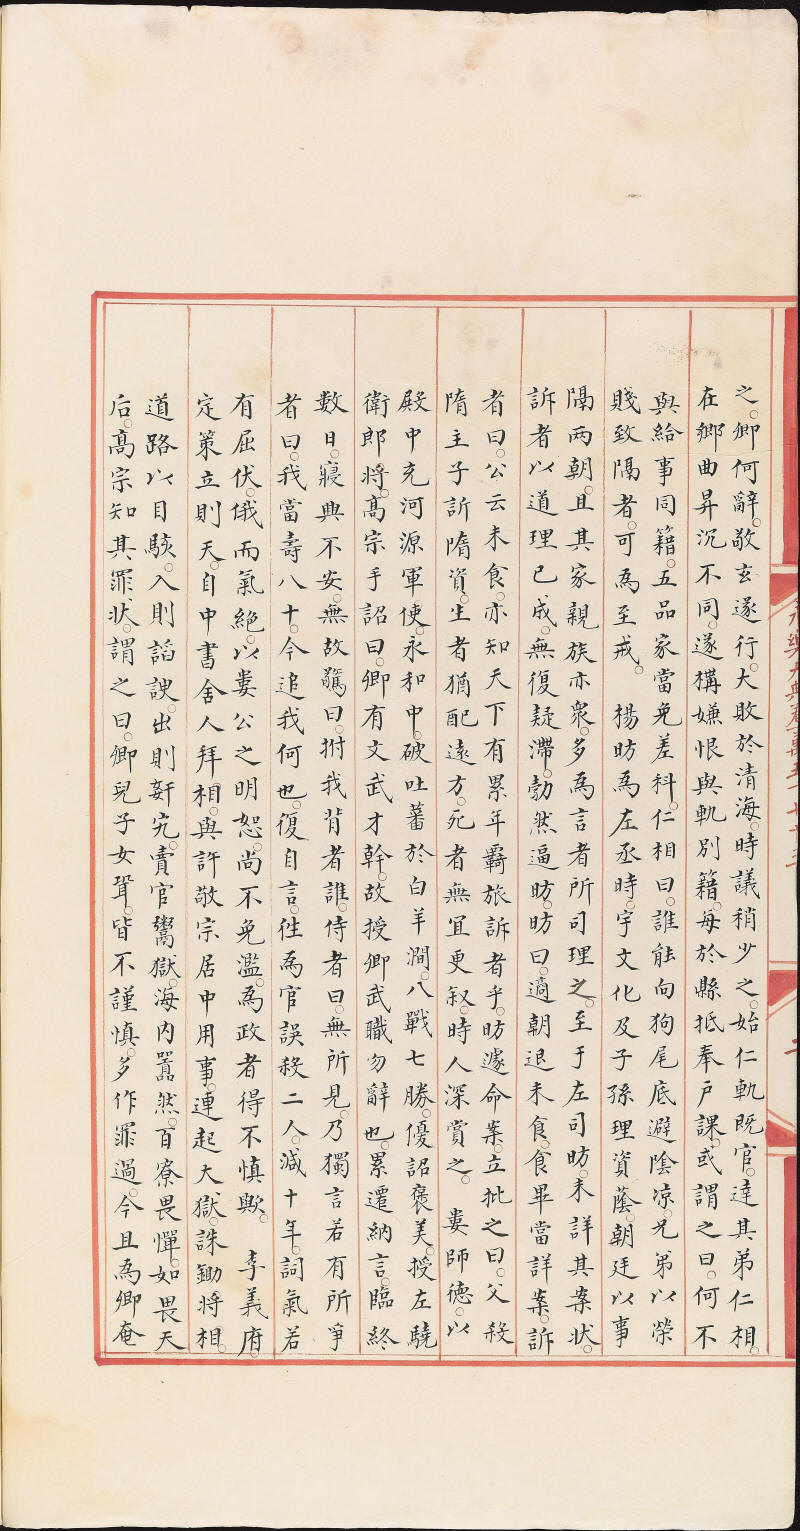 之。卿何辭。敬玄遂行。大敗於清海。時議稍少之。始仁軌既官。達其弟仁相。
在鄉曲昇沉不同。遂搆嫌恨與軌別籍。每於縣抵奉戶課。或謂之曰。何不
與給事同籍。五品家當免差科。仁相曰。誰能向狗尾底避陰凉。兄弟以榮
賤致隔者。可為至戒。　楊昉為左丞時。宇文化及子孫理資蔭。朝廷以事
隔兩朝。且其家親族亦衆。多為言者所司理之。至于左司昉。未詳其案狀。
訴者以道理已成。無復疑滯。勃然逼昉。昉曰。適朝退未食。食畢當詳案。訴
者曰。公云未食。亦知天下有累年羇旅訴者乎。昉遽命案。立批之曰。父殺
隋主子訴隋資。生者猶配遠方。死者無冝更叙。時人深賞之。　婁師德。以
殿中充河源軍使。永和中。破吐蕃於白羊澗。八戰七勝。優詔褒美。授左驍
衛郎將。髙宗手詔曰。卿有文武才幹。故授卿武職勿辭也。累遷納言。臨終
數日。寢興不安。無故驚曰。拊我背者誰。侍者曰。無所見。乃獨言若有所爭
者曰。我當壽八十。今追我何也。復自言。徃為官誤殺二人。减十年。詞氣若
有屈伏。俄而氣絕。以婁公之明恕。尚不免濫。為政者得不慎歟。　李義府。
定策立則天。自中書舍人拜相。與許敬宗居中用事。連起大獄。誅鋤將相。
道路以目駭。入則諂諛。出則姧宄。賣官鬻獄。海内嚚然。百寮畏憚。如畏天
后。髙宗知其罪狀。謂之曰。卿兒子女壻。皆不謹慎。多作罪過。今且為卿奄